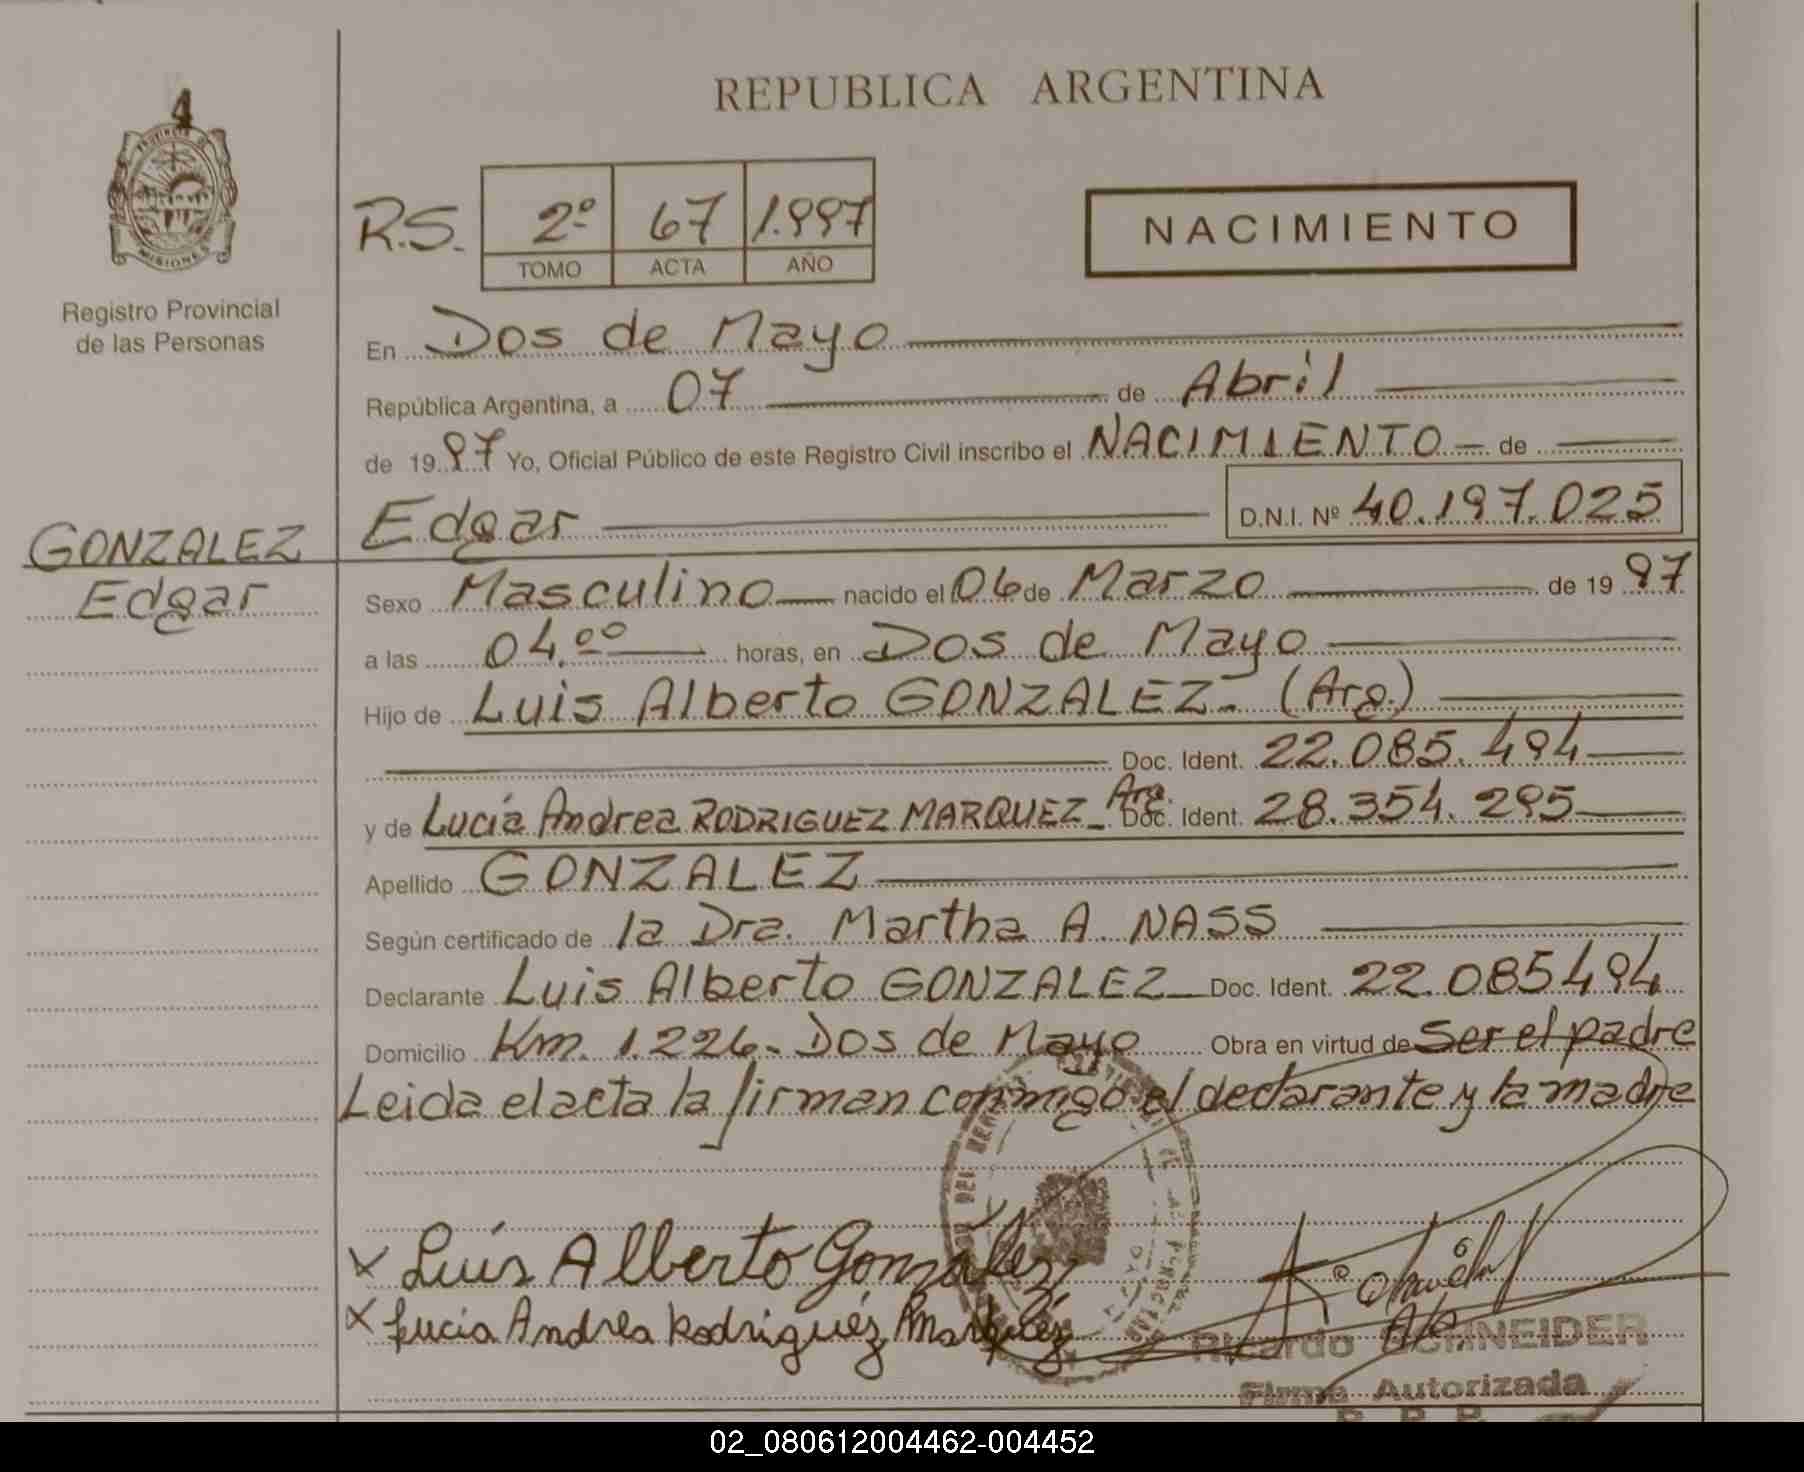 REPUBLICA ARGENTINA
4
PROVINCIA DE
MISIONES
Registro Provincial
de las Personas
R.S. 2º 67 1.997
TOMO ACTA AÑO
NACIMIENTO
En Dos de Mayo
República Argentina, a 07 de Abril
de 1997 Yo, Oficial Público de este Registro Civil inscribo el NACIMIENTO de
Edgar D.N.I. Nº 40.197.025
GONZALEZ
Edgar
Sexo Masculino nacido el 06 de Marzo de 1997
a las 04.00 horas, en Dos de Mayo
Hijo de Luis Alberto GONZALEZ- (Arg.)
Doc. Ident. 22.085.494
y de Lucía Andrea RODRIGUEZ MARQUEZ- Arg. Doc. Ident. 28.354.295
Apellido GONZALEZ
Según certificado de la Dra. Martha A. NASS
Declarante Luis Alberto GONZALEZ Doc. Ident. 22.085494
Domicilio Km. 1.226- Dos de Mayo Obra en virtud de Ser el padre
Leida el acta la firman conmigo el declarante y la madre
X Luis Alberto González
X Lucia Andrea Rodriguéz Marquéz
Ricardo SCHNEIDER
Firma Autorizada
02_080612004462-004452